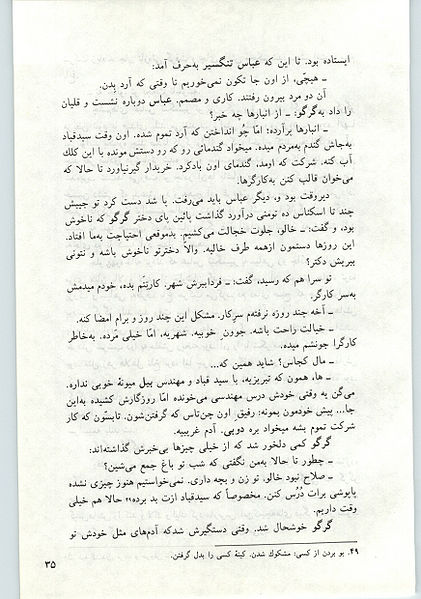 ایستاده بود. تا این که عباس تنگسیر به‌حرف آمد:
ـ هیچّی، از اون جا تکون نمی‌خوریم تا وقتی که آرد بدن.
آن دو مرد بیرون رفتند. کاری و مصمم. عباس دوباره نشست و قلیان
را داد به‌گرگو: ـ از انبارها چه خبر؟
ـ انبارها پرآرده؛ امّا چُو انداختن که آرد تموم شده. اون وقت سیدقباد
به‌جاش گندم به‌مردم میده. میخواد گندماتی رو که رو دستش مونده با این کلك
آب کنه. شرکت که اومد، گندمای اون بادکرد. خریدار گیرنیاورد تا حالا که
می‌خوان قالب کنن به‌کارگرها.
دیروقت بود و، دیگر عباس باید می‌رفت. با شد دست کرد تو جیبش
چند تا اسکناس ده تومنی درآورد گذاشت پائین پای دختر گرگو که ناخوش
بود، و گفت: ـ خالو، جلوت خجالت می‌کشیم. بدموقعی احتیاجت به‌ما افتاد.
این روزها دستمون ازهمه طرف خالیه. والاّ دخترتو ناخوش باشه و نتونی
ببریش دکتر؟
تو سرا هم که رسید، گفت: ـ فردابیرش شهر. کارتم بده، خودم میدمش
به‌سر کارگر.
ـ آخه چند روزه نرفته‌م سرکار. مشکل این چند روز و برام امضا کنه.
ـ خیالت راحت باشه. جوون ِ خوبیه. شهریه، امّا خیلی مَرده. به‌خاطر
کارگرا جونشم میده.
ـ مال کجاس؟ شاید همین که...
ـ ها، همون که تبریزیه، با سید قباد و مهندس بیل میونهٔ خوبی نداره.
می‌گن یه وقتی خودش درس مهندسی می‌خونده امّا روزگارش کشیده به‌این
جا... پیش خودمون بمونه: رفیق ِ اون چن‌تاس که گرفتن‌شون. تابستّون که کار
شرکت تموم بشه میخواد بره دوبی. آدم غریبیه.
گرگو کمی دلخور شد که از خیلی چیزها بی‌خبرش گذاشته‌اند:
ـ چطور تا حالا به‌من نگفتی که شب تو باغ جمع می‌شین؟
ـ صلاح نبود خالو، تو زن و بچه داری. نمی‌خواستیم هنوز چیزی نشده
پاپوشی برات دُرُس کنن. مخصوصاً که سیدقباد ازت بد برده۴۹ حالا هم خیلی
وقت داریم.
گرگو خوشحال شد. وقتی دستگیرش شدکه آدم‌های مثل خودش تو
۴۹. بو بردن از کسی: مشکوك شدن. کینهٔ کسی را بدل گرفتن.
۳۵